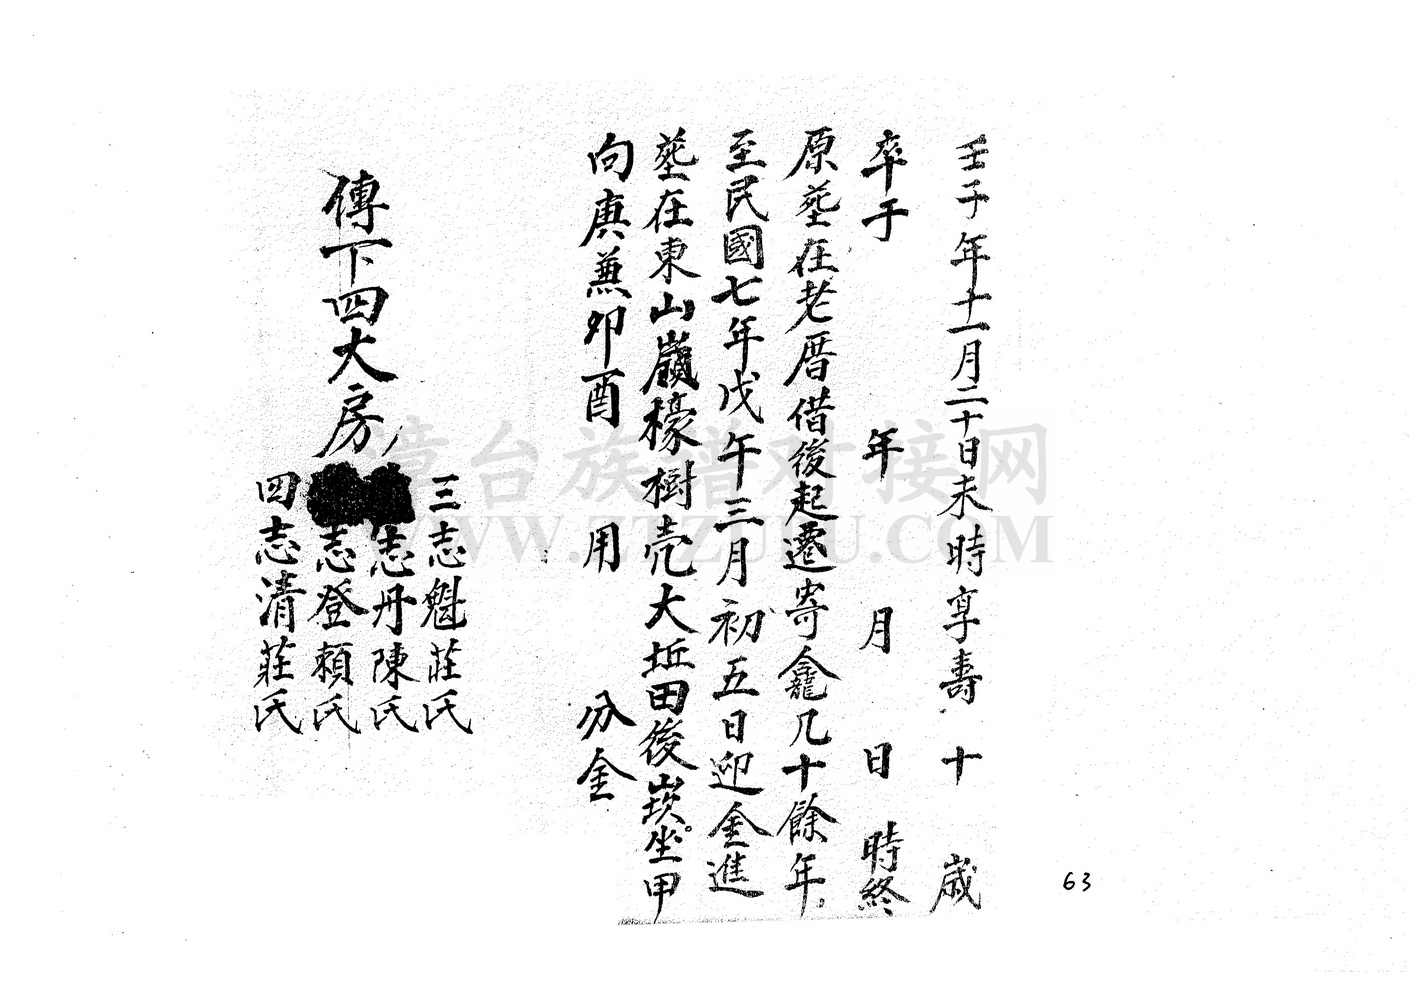 壬子年十一月二十日未時享壽 十 歲
卒于 年 月 日 時終
原塟在老厝借後起遷寄龕几十餘年。
至民國七年戊午三月初五日迎金進
塟在東山嶺檺樹壳大坵田後崁坐甲
向庚兼卯酉 用 分金
傳下四大房
三志魁莊氏
志丹陳氏
志登賴氏
四志清莊氏
63
漳台族譜对接网
WWW.ZTZUPU.COM